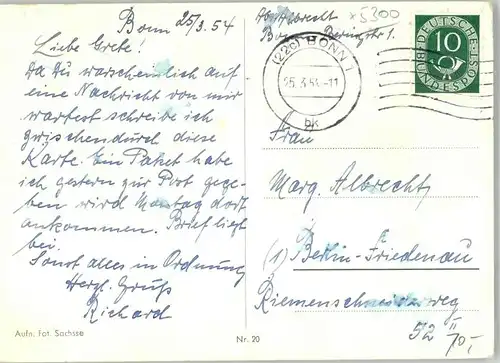 Bonn 25/3.54
Liebe Grete!
Da Du warscheinlich auf
eine Nachricht von mir
wartest schreibe ich
zwischendurch diese
Karte. Ein Paket habe
ich gestern zur Post gege-
ben wird Montag dort
ankommen. Brief liegt
bei.
Sonst alles in Ordnung
Herzl. Gruß
Richard
Aufn. Fot. Sachsse
Nr. 20
Albrecht
x5300
Beringstr 1.
(22c) BONN 1
25.3.54.-11
bk
DEUTSCHE
BUNDESPOST
10
Frau
Marg. Albrecht
(1) Berlin-Friedenau
Riemenschneiderweg
52 II
70,-